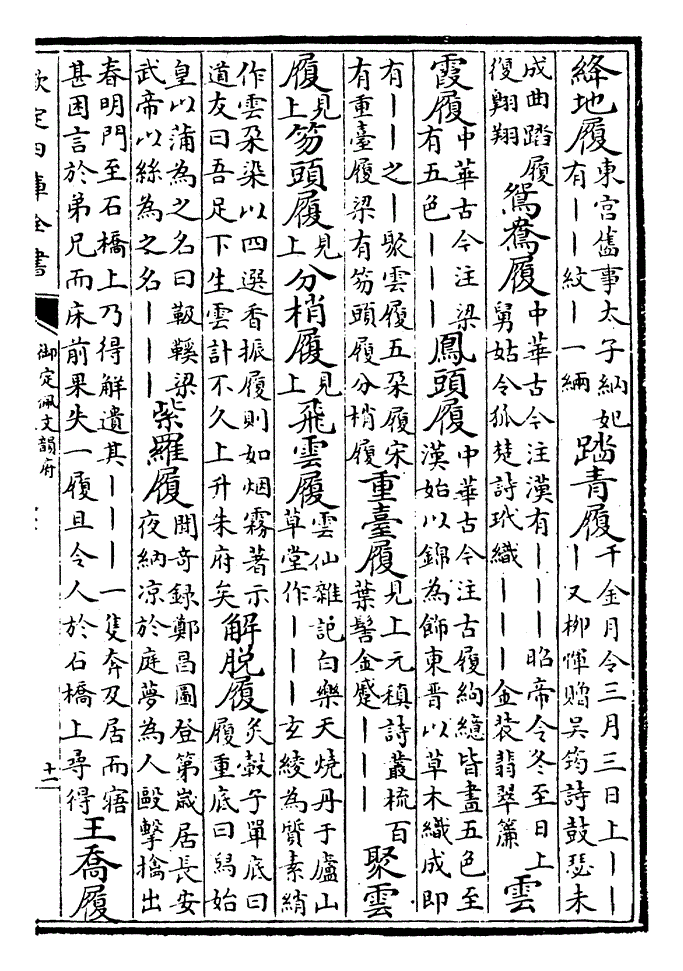 絳地履東宮舊事太子納妃有丨丨紋丨一緉踏青履千金月令三月三日上丨丨丨又栁惲贈吳筠詩鼓瑟未
成曲踏履復翺翔鴛鴦履中華古今注漢有丨丨丨昭帝令冬至日上舅姑令狐楚詩玳織丨丨丨金裝翡翠簾雲
霞履中華古今注梁有五色丨丨丨鳳頭履中華古今注古履絇繶皆畫五色至漢始以錦為飾東晋以草木織成即
有丨丨之丨聚雲履五朶履宋有重臺履梁有笏頭履分梢履重臺履見上元稹詩叢梳百葉髻金蹙丨丨丨聚雲
履見上笏頭履見上分梢履見上飛雲履雲仙雜記白樂天燒丹于廬山草堂作丨丨丨玄綾為質素綃
作雲朶染以四選香振履則如烟霧著示道友曰吾足下生雲計不久上升朱府矣解脱履炙轂子單底曰履重底曰舄始
皇以蒲為之名曰靸鞵梁武帝以絲為之名丨丨丨紫羅履聞奇録鄭昌圖登第嵗居長安夜納凉於庭夢為人毆擊擒出
春明門至石橋上乃得解遺其丨丨丨一隻奔及居而寤甚困言於弟兄而床前果失一履且令人於石橋上尋得王喬履
欽定四庫全書
御定佩文韻府
十二